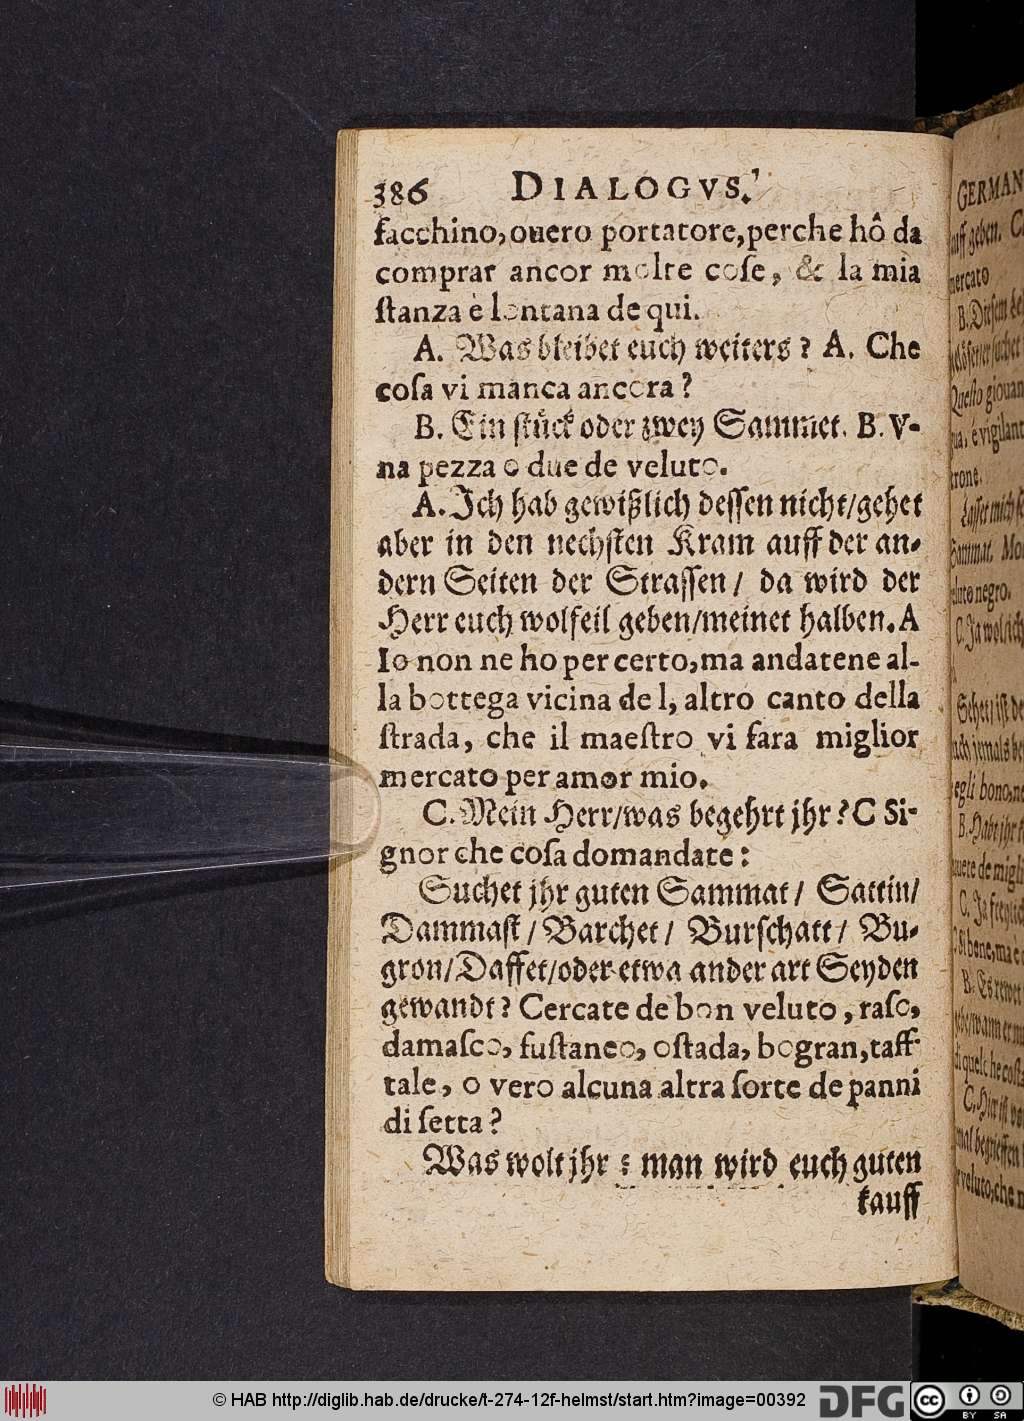 386 DIALOGVS.
facchino, ouero portatore, perche hô da
comprar ancor molte coſe, & la mia
ſtanza è lontana de qui.
A. Was bleibet euch weiters? A. Che
coſa vi manca ancora?
B. Ein ſtuͤck oder zwey Sammet. B. V-
na pezza o due de veluto.
A. Ich hab gewißlich deſſen nicht/gehet
aber in den nechſten Kram auff der an-
dern Seiten der Straſſen/ da wird der
Herr euch wolfeil geben/meinet halben. A
Io non ne ho per certo, ma andatene al-
la bottega vicina de l, altro canto della
ſtrada, che il maeſtro vi fara miglior
mercato per amor mio.
C. Mein Herr/was begehrt jhr? C Si-
gnor che coſa domandate:
Suchet jhr guten Sammat/ Sattin/
Dammaſt/ Barchet/ Burſchatt/ Bu-
gron/Daffet/oder etwa ander art Seyden
gewandt? Cercate de bon veluto, raſo,
damaſco, fuſtaneo, oſtada, bogran, taff-
tale, o vero alcuna altra ſorte de panni
di ſetta?
Was wolt jhr: man wird euch guten
kauff
GERMAN
auff geben. C
mercato
B. Dieſem
Queſto giouan
è vigilant
trone.
Laſſet mich
Sammat. Mo
veluto negro.
C. Ja wol ich
Sehet/ iſt
jemals
egli bono, ne
B. Habt jhr
auete de migli
C. Ja freylich
C. Si bene, ma
B. Es
wann er
di quel che coſta
C. Hier iſt
mal begrieffen
veluto, che
© HAB http://diglib.hab.de/drucke/t-274-12f-helmst/start.htm?image=00392
DFG
cc BY SA